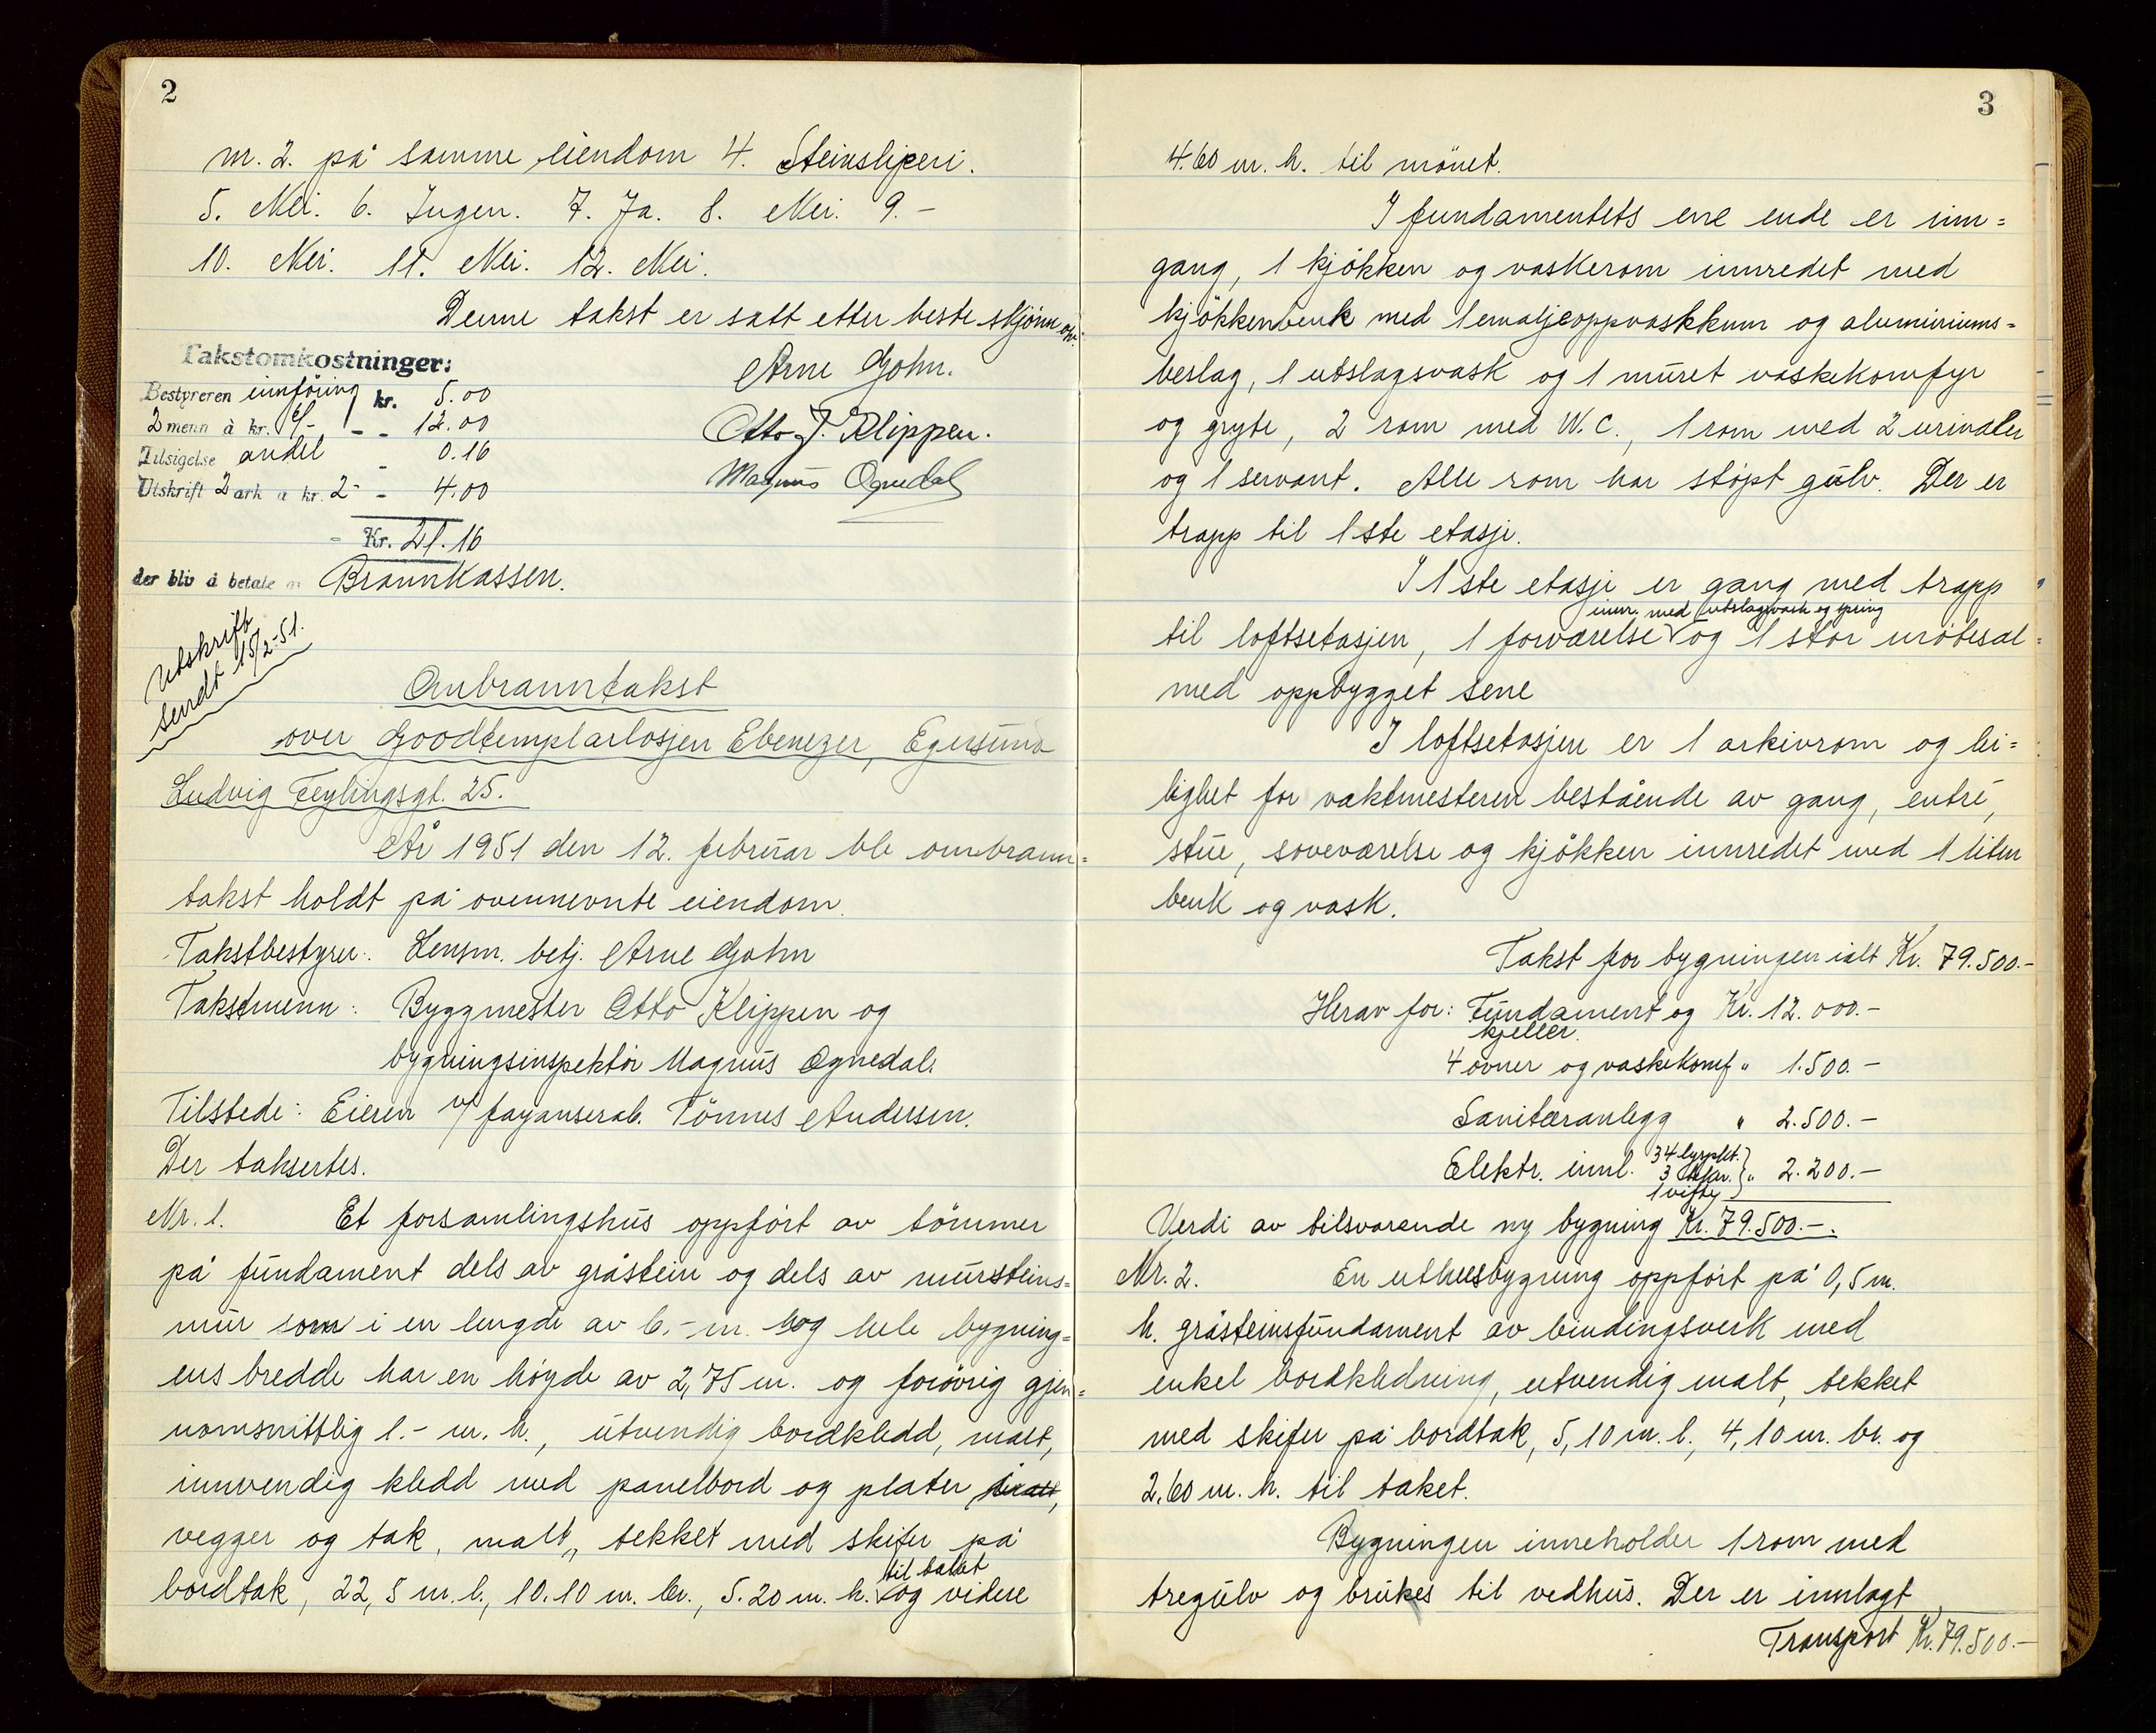 2
nr. 2. på samme eiendom 4. Steinsliperi.
5. Nei. 6. Ingen. 7. Ja. 8. Nei. 9. -
10. Nei. 11. Nei. 12. Nei.
Denne takst er satt etter beste skjönn
Takstomkostninger:
Bestyreren innföring kr. 5.00
2 menn à kr. 6/- - - 12.00
Tilsigelse andel - 0.16
Utskrift 2 ark a kr. 2- - 4.00
- Kr. 21.16
der bliv å betale Brannkassen.
Arne Gjohn.
Otto J. Klippen.
Magnus Ognedal
Utskrift
sendt 15/2-51.
Ombranntakst
over Goodtemplarlosjen Ebenezer, Egersund
Ludvig Feylingsgt. 25.
År 1951 den 12. februar ble ombrann=
takst holdt på ovennevnte eiendom.
Takstbestyrer: Lensm. betj. Arne Gjohn
Takstmenn: Byggmester Otto Klippen og
bygningsinspektör Magnus Ognedal.
Tilstede: Eieren v/ fayansearb. Tönnes Andersen.
Der taksertes.
Nr. 1. Et forsamlingshus oppfört av tömmer
på fundament dels av gråstein og dels av mursteins=
mur som i en lengde av 6,- m. og hele bygning=
ens bredde har en höyde av 2,75 m. og forövrig gjen=
nomsnittlig 1.- m. h., utvendig bordkledd, malt,
innvendig kledd med panelbord og plater
vegger og tak, malt, tekket med skifer på
til taket
bordtak, 22,5 m. l., 10.10 m. br., 5.20 m. h. og videre
3
4.60 m. h. til mönet.
I fundamentets ene ende er inn=
gang, 1 kjökken og vaskerom innredet med
kjökkenbenk med 1 emaljeoppvaskkum og aluminiums=
beslag, 1 utslagsvask og 1 muret vaskekomfyr
og gryte, 2 rom med W.C., 1 rom med 2 urinaler
og 1 servant. Alle rom har stöpt gulv. Der er
trapp til 1ste etasje.
I 1ste etasje er gang med trapp
innr. med utslagsvask og spring
til loftsetasjen, 1 forværelse og 1 stor mötesal
med oppbygget sene
I loftsetasjen er 1 arkivrom og lei=
lighet for vaktmesteren bestående av gang, entré,
stue, soveværelse og kjökken innredet med 1 liten
benk og vask.
Takst for bygningen ialt Kr. 79.500.-
Herav for: Fundament og Kr. 12.000.-
kjeller.
4 ovner og vaskekomf " 1.500.-
Sanitæranlegg " 2.500.-
34 lyspkt.
Elektr. innl. 3 " 2.200.-
1 vifte
Verdi av tilsvarende ny bygning Kr. 79.500.-.
Nr. 2. En uthusbygning oppfört på 0,5 m.
h. gråsteinsfundament av bindingsverk med
enkel bordkledning, utvendig malt, tekket
med skifer på bordtak, 5,10 m. l., 4,10 m. br. og
2.60 m. h. til taket.
Bygningen inneholder 1 rom med
tregulv og brukes til vedhus. Der er innlagt
Transport Kr. 79.500.-